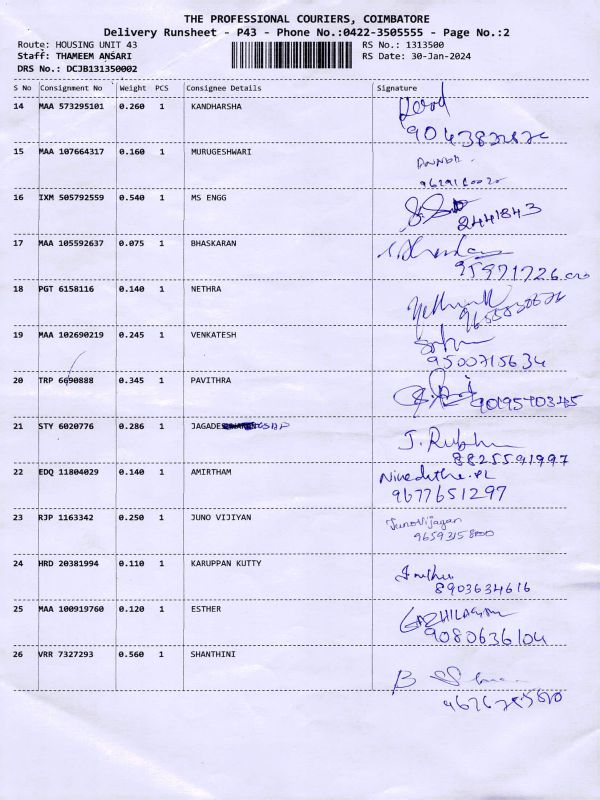 THE PROFESSIONAL COURIERS, COIMBATORE
Delivery Runsheet - P43 - Phone No.:0422-3505555 - Page No.:2
Route: HOUSING UNIT 43 RS No.: 1313500
Staff: THAMEEM ANSARI RS Date: 30-Jan-2024
DRS No.: DCJB131350002
S No Consignment No Weight PCS Consignee Details Signature
14 MAA 573295101 0.260 1 KANDHARSHA
15 MAA 107664317 0.160 1 MURUGESHWARI
16 IXM 505792559 0.540 1 MS ENGG
2441843
17 MAA 105592637 0.075 1 BHASKARAN
18 PGT 6158116 0.140 1 NETHRA
19 MAA 102690219 0.245 1 VENKATESH
9500715634
20 TRP 6690888 0.345 1 PAVITHRA
21 STY 6020776 0.286 1
J. Rubhu
8825591997
22 EDQ 11804029 0.140 1 AMIRTHAM
9677651297
23 RJP 1163342 0.250 1 JUNO VIJIYAN
Juno Vijayan
24 HRD 20381994 0.110 1 KARUPPAN KUTTY
8903634616
25 MAA 100919760 0.120 1 ESTHER
9080636104
26 VRR 7327293 0.560 1 SHANTHINI